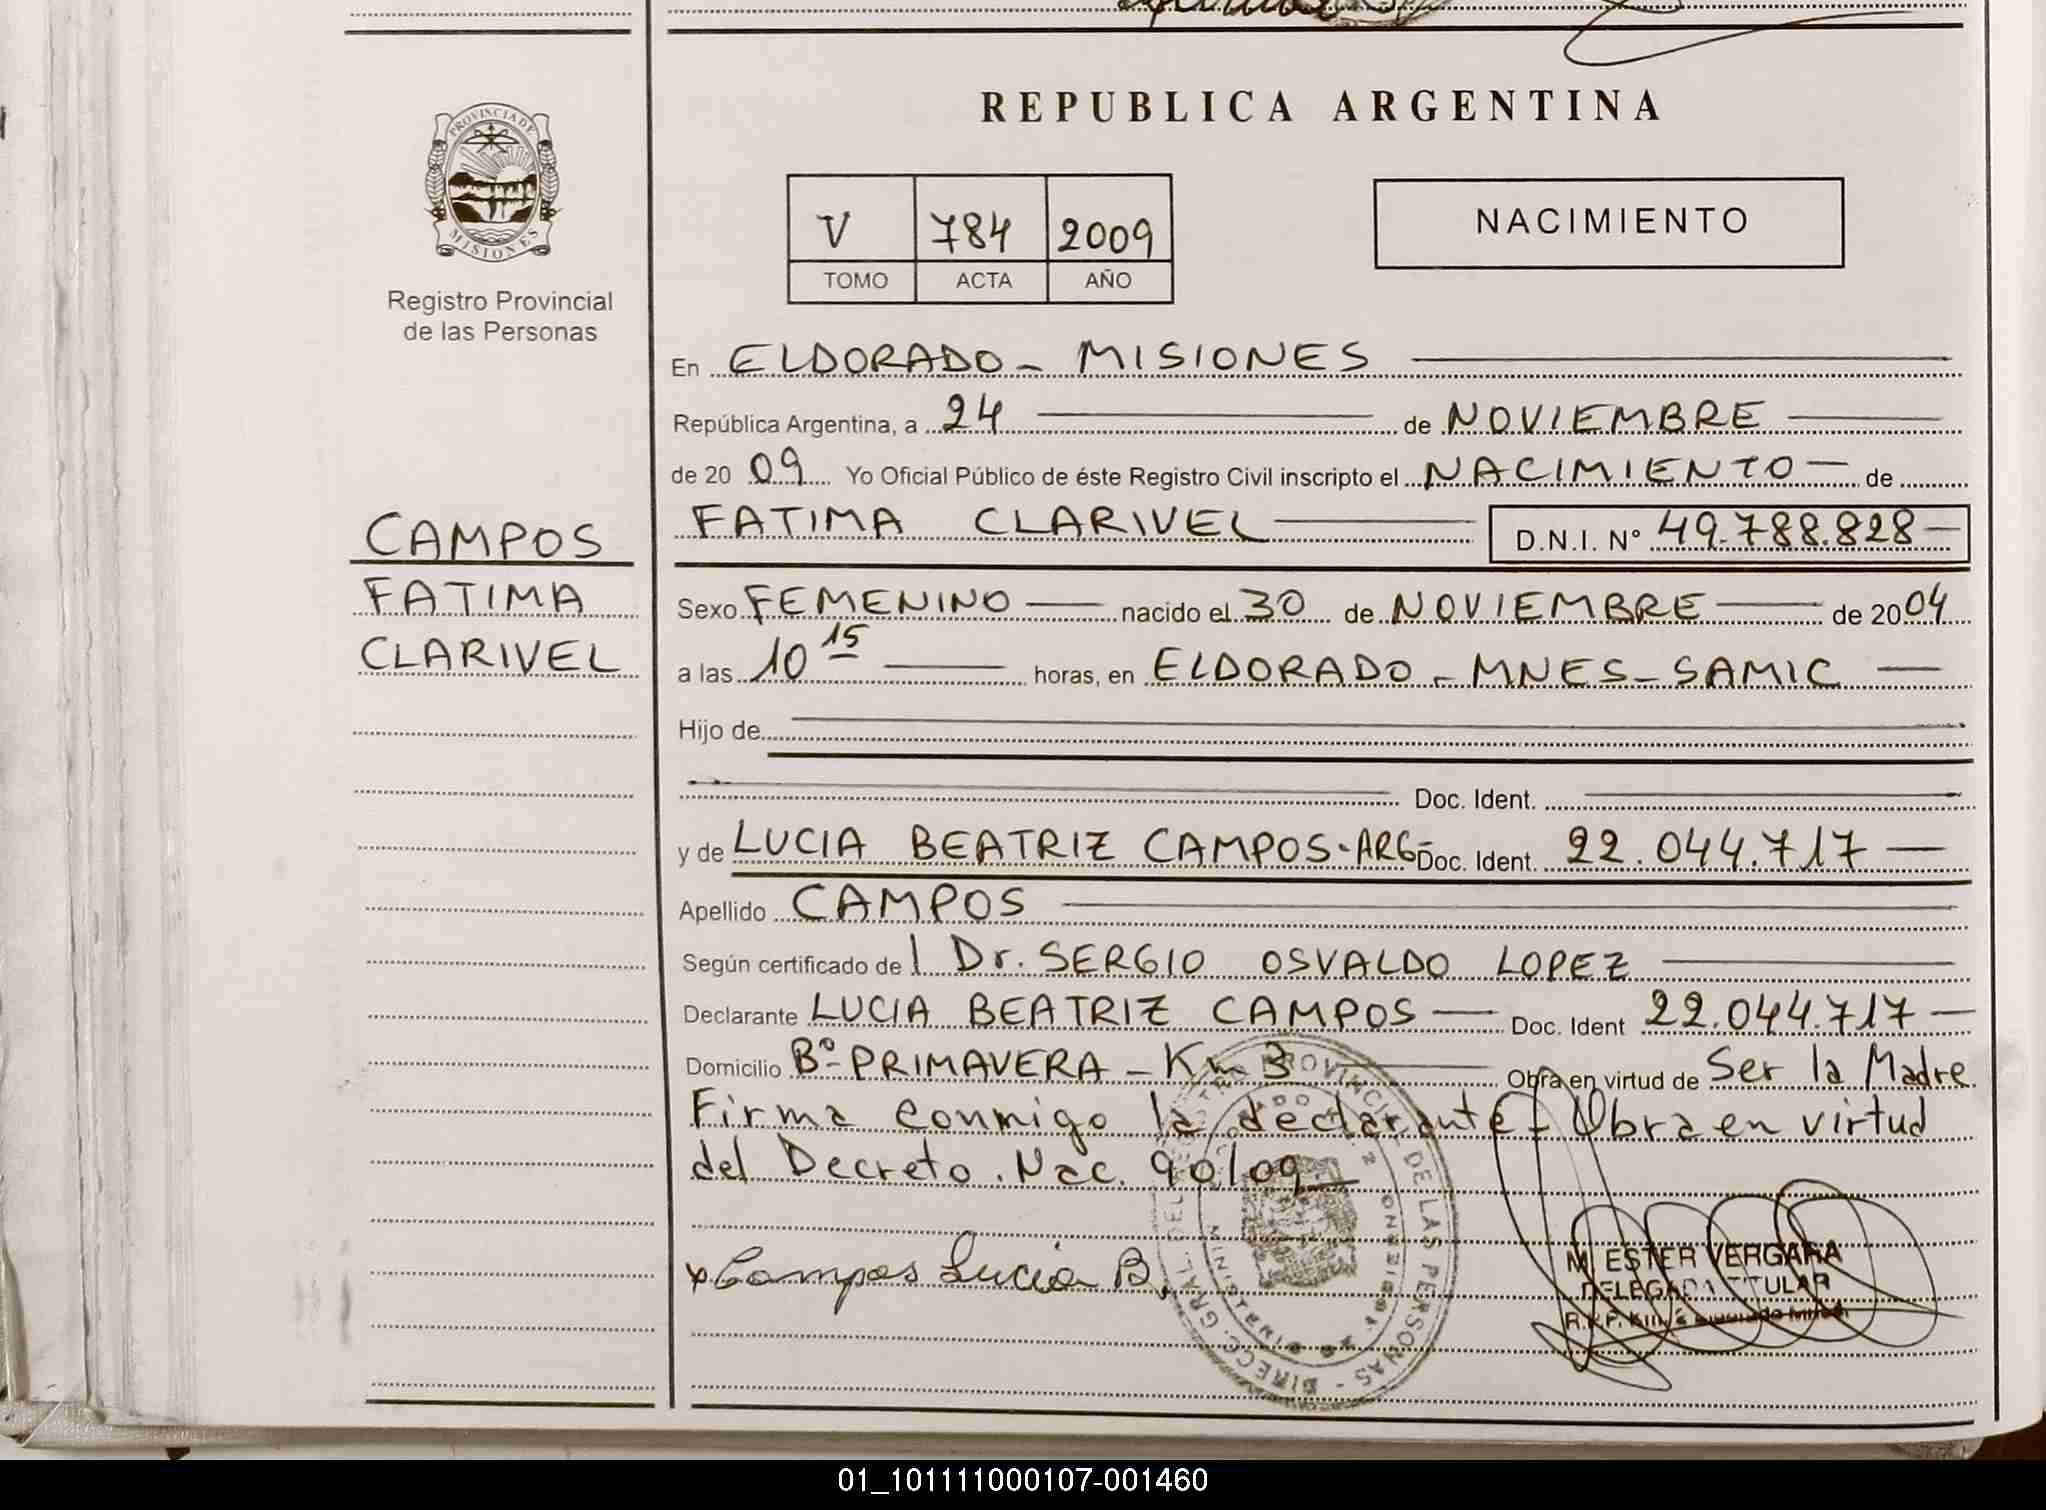 PROVINCIA DE
MISIONES
Registro Provincial
de las Personas
CAMPOS
FATIMA
CLARIVEL
REPUBLICA ARGENTINA
V 784 2009
TOMO ACTA AÑO
NACIMIENTO
En ELDORADO - MISIONES
República Argentina, a 24 de NOVIEMBRE
de 2009 Yo Oficial Público de éste Registro Civil inscripto el NACIMIENTO de
FATIMA CLARIVEL D.N.I. N° 49.788.828
Sexo FEMENINO nacido el 30 de NOVIEMBRE de 2004
a las 10 15 horas, en ELDORADO - MNES - SAMIC
Hijo de
Doc. Ident.
y de LUCIA BEATRIZ CAMPOS-ARG- Doc. Ident. 22.044.717
Apellido CAMPOS
Según certificado de l Dr. SERGIO OSVALDO LOPEZ
Declarante LUCIA BEATRIZ CAMPOS Doc. Ident 22.044.717
Domicilio B° PRIMAVERA - Km 3 Obra en virtud de Ser la Madre
Firma conmigo la declarante - Obra en virtud
del Decreto. Nac. 90/09
x Campos Lucia B.
M. ESTER VERGARA
DELEGADA TITULAR
DE LAS PERSONAS - DIRECC. GRAL. DEL
01_101111000107-001460